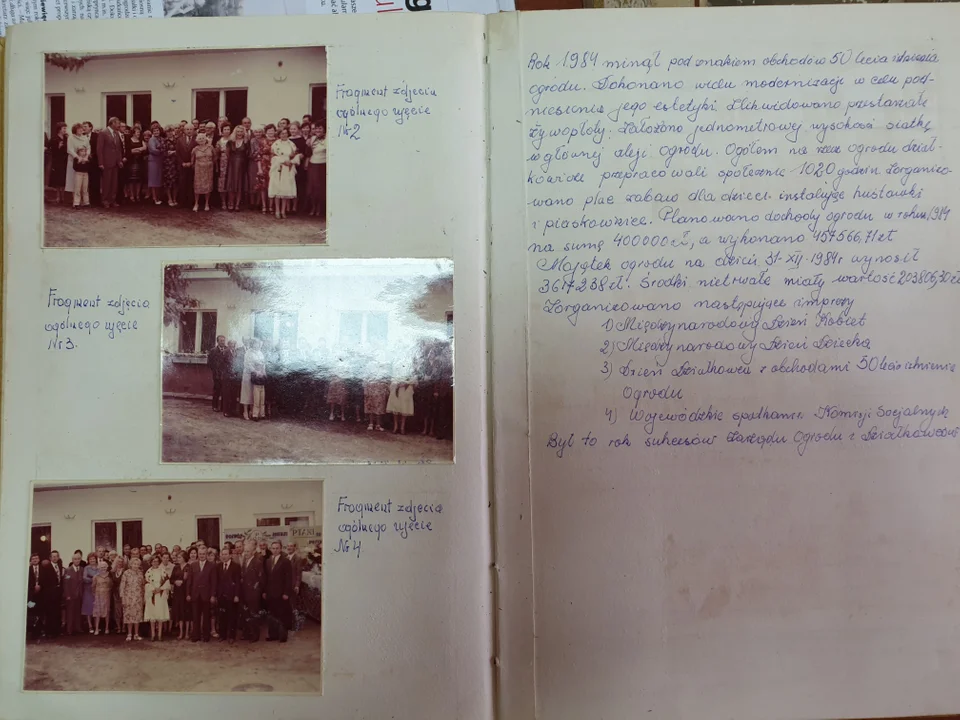 Fragment zdjęcia
ogólnego ujęcie
Nr 2
Fragment zdjęcia
ogólnego ujęcie
Nr 3.
Fragment zdjęcia
ogólnego ujęcie
Nr 4
Rok 1984 minął pod znakiem obchodów 50 lecia istnienia
ogrodu. Dokonano wielu modernizacji w celu pod-
niesienia jego estetyki. Zlikwidowano przestarzałe
żywopłoty. Założono jednometrowej wysokości siatkę
w głównej aleji ogrodu. Ogółem na rzecz ogrodu dział-
kowicze przepracowali społecznie 1020 godzin. Zorganizo-
wano plac zabaw dla dzieci instalując huśtawki
i piaskownice. Planowano dochody ogrodu w roku 1984
na sumę 400000 zł, a wykonano 457566,71 zł
Majątek ogrodu na dzień 31.XII.1984r wynosił
3617238 zł. Środki nietrwałe miały wartość 203806,30 zł
Zorganizowano następujące imprezy
1) Międzynarodowy Dzień Kobiet
2) Międzynarodowy Dzień Dziecka
3) Dzień Działkowca z obchodami 50 lecia istnienia
Ogrodu
4) Wojewódzkie spotkanie Komisji Socjalnych
Był to rok sukcesów Zarządu Ogrodu i Działkowców